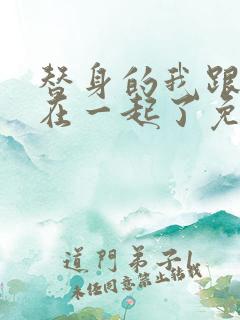 替身的我跟
在一起了免
道門弟子l
未经同意禁止转载